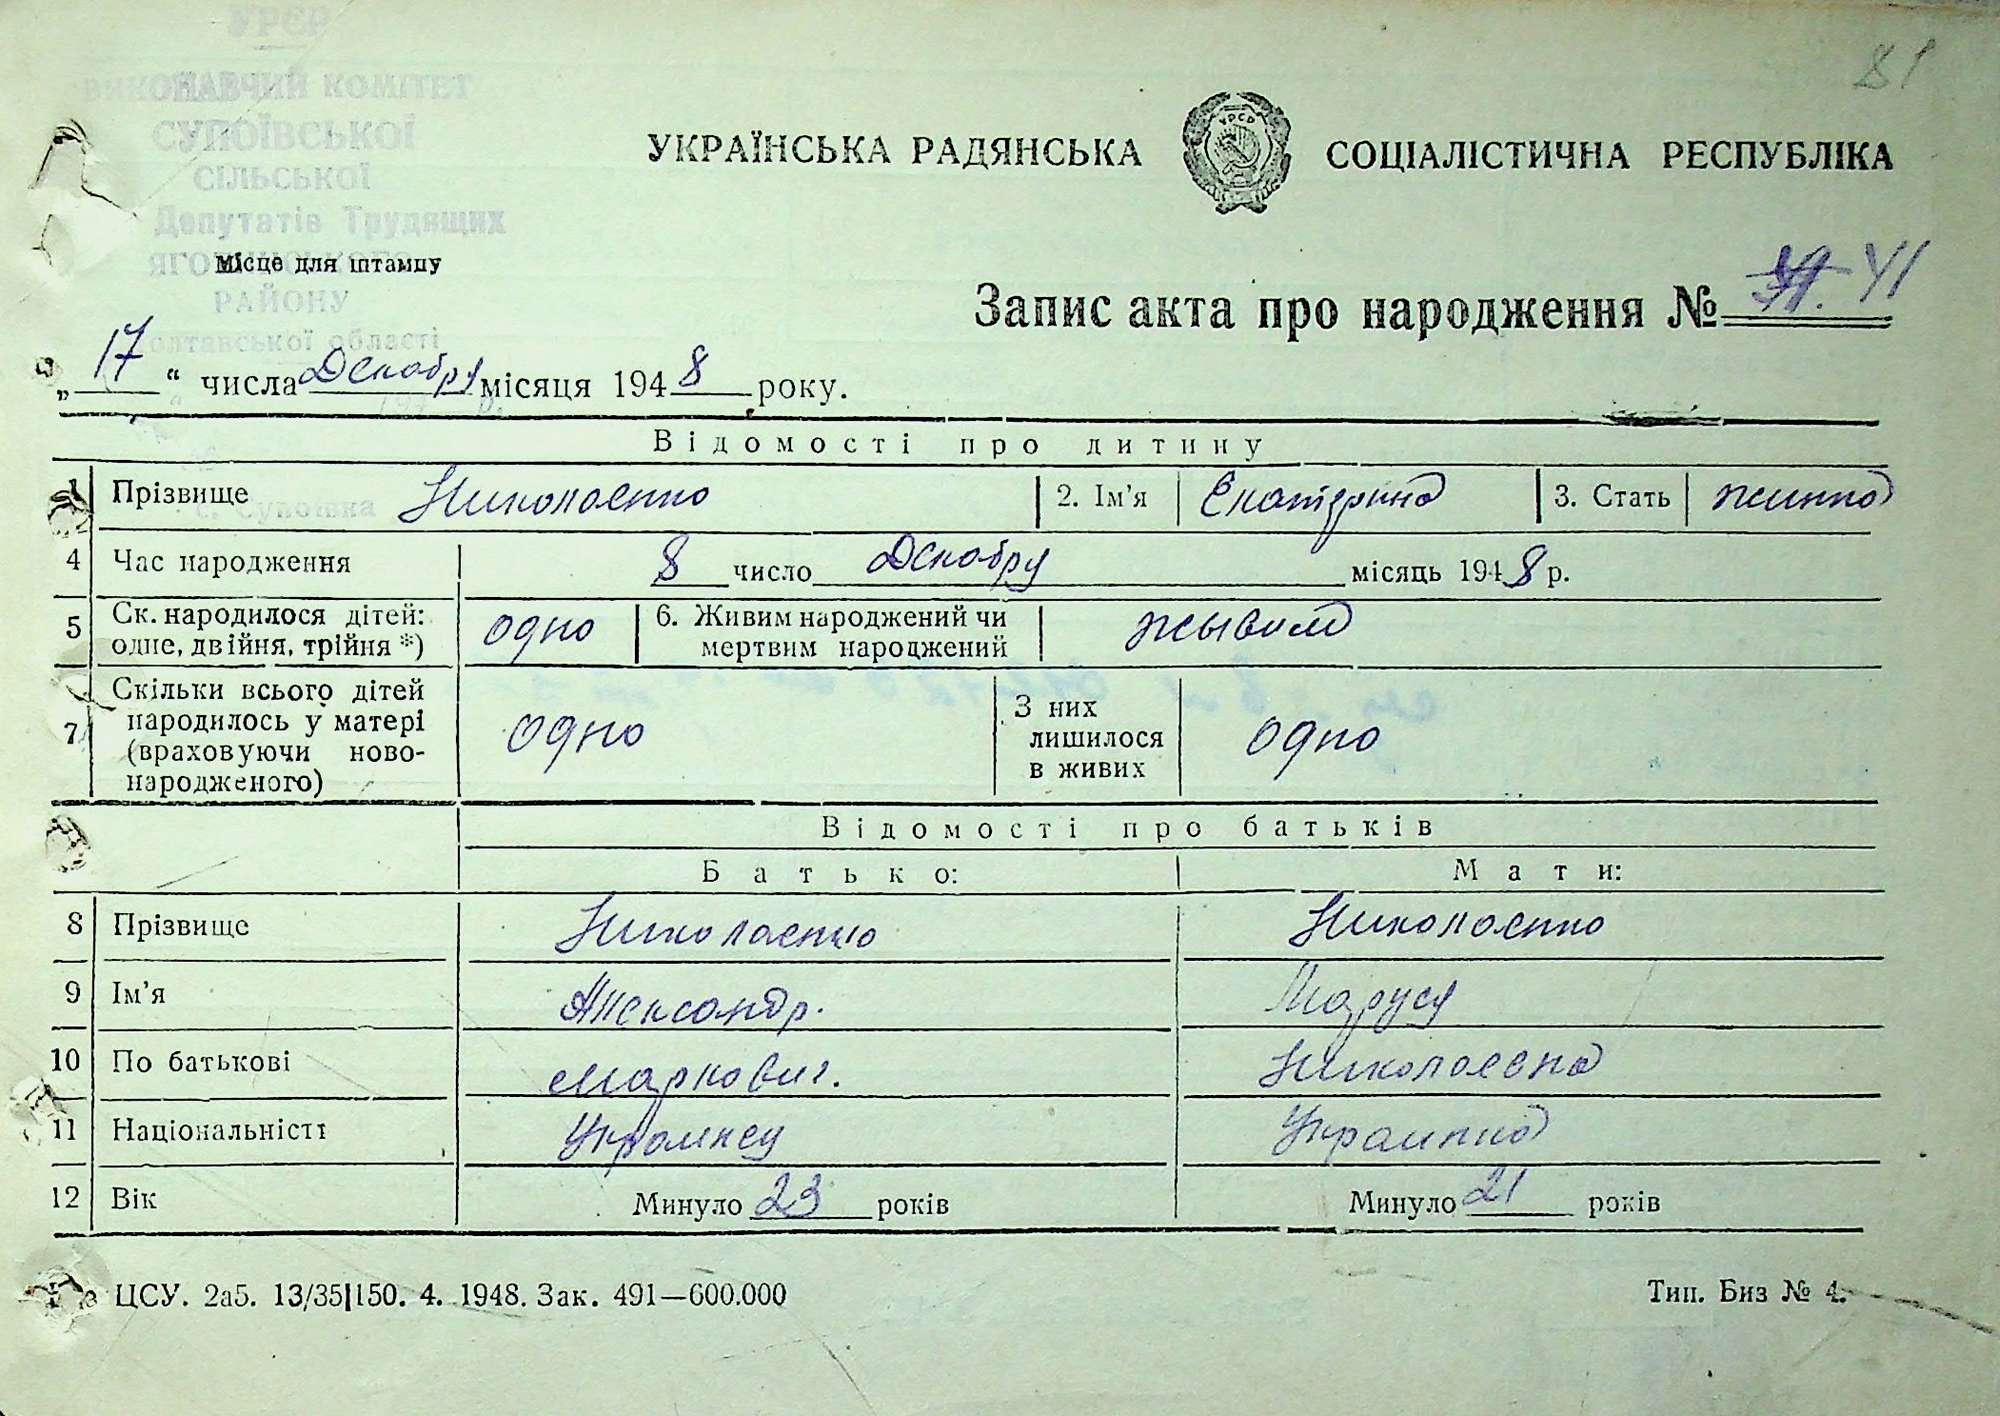 81
УРСР
ВИКОНАВЧИЙ КОМІТЕТ
СУПОЇВСЬКОЇ
СІЛЬСЬКОЇ
Депутатів Трудящих
РАЙОНУ
Полтавської області
с. Супоївка
УКРАЇНСЬКА РАДЯНСЬКА СОЦІАЛІСТИЧНА РЕСПУБЛІКА
УРСР
Місце для штампу
Запис акта про народження № 41
„17“ числа Декабру місяця 1948 року.
Відомості про дитину
1 Прізвище Николаенко 2. Ім’я Екатерина 3. Стать жинка
4 Час народження 8 число Декабру місяць 1948 р.
5 Ск. народилося дітей: одне, двійня, трійня *) одно 6. Живим народжений чи мертвим народжений жывим
7 Скільки всього дітей народилось у матері (враховуючи новонародженого) одно З них лишилося в живих одно
Відомості про батьків
Батько: Мати:
8 Прізвище Николаенко Николаенко
9 Ім’я Александр. Маруся
10 По батькові Маркович. Николаевна
11 Національність Украинец Украинка
12 Вік Минуло 23 років Минуло 21 років
ЦСУ. 2а5. 13/35|150. 4. 1948. Зак. 491—600.000 Тип. Биз № 4.